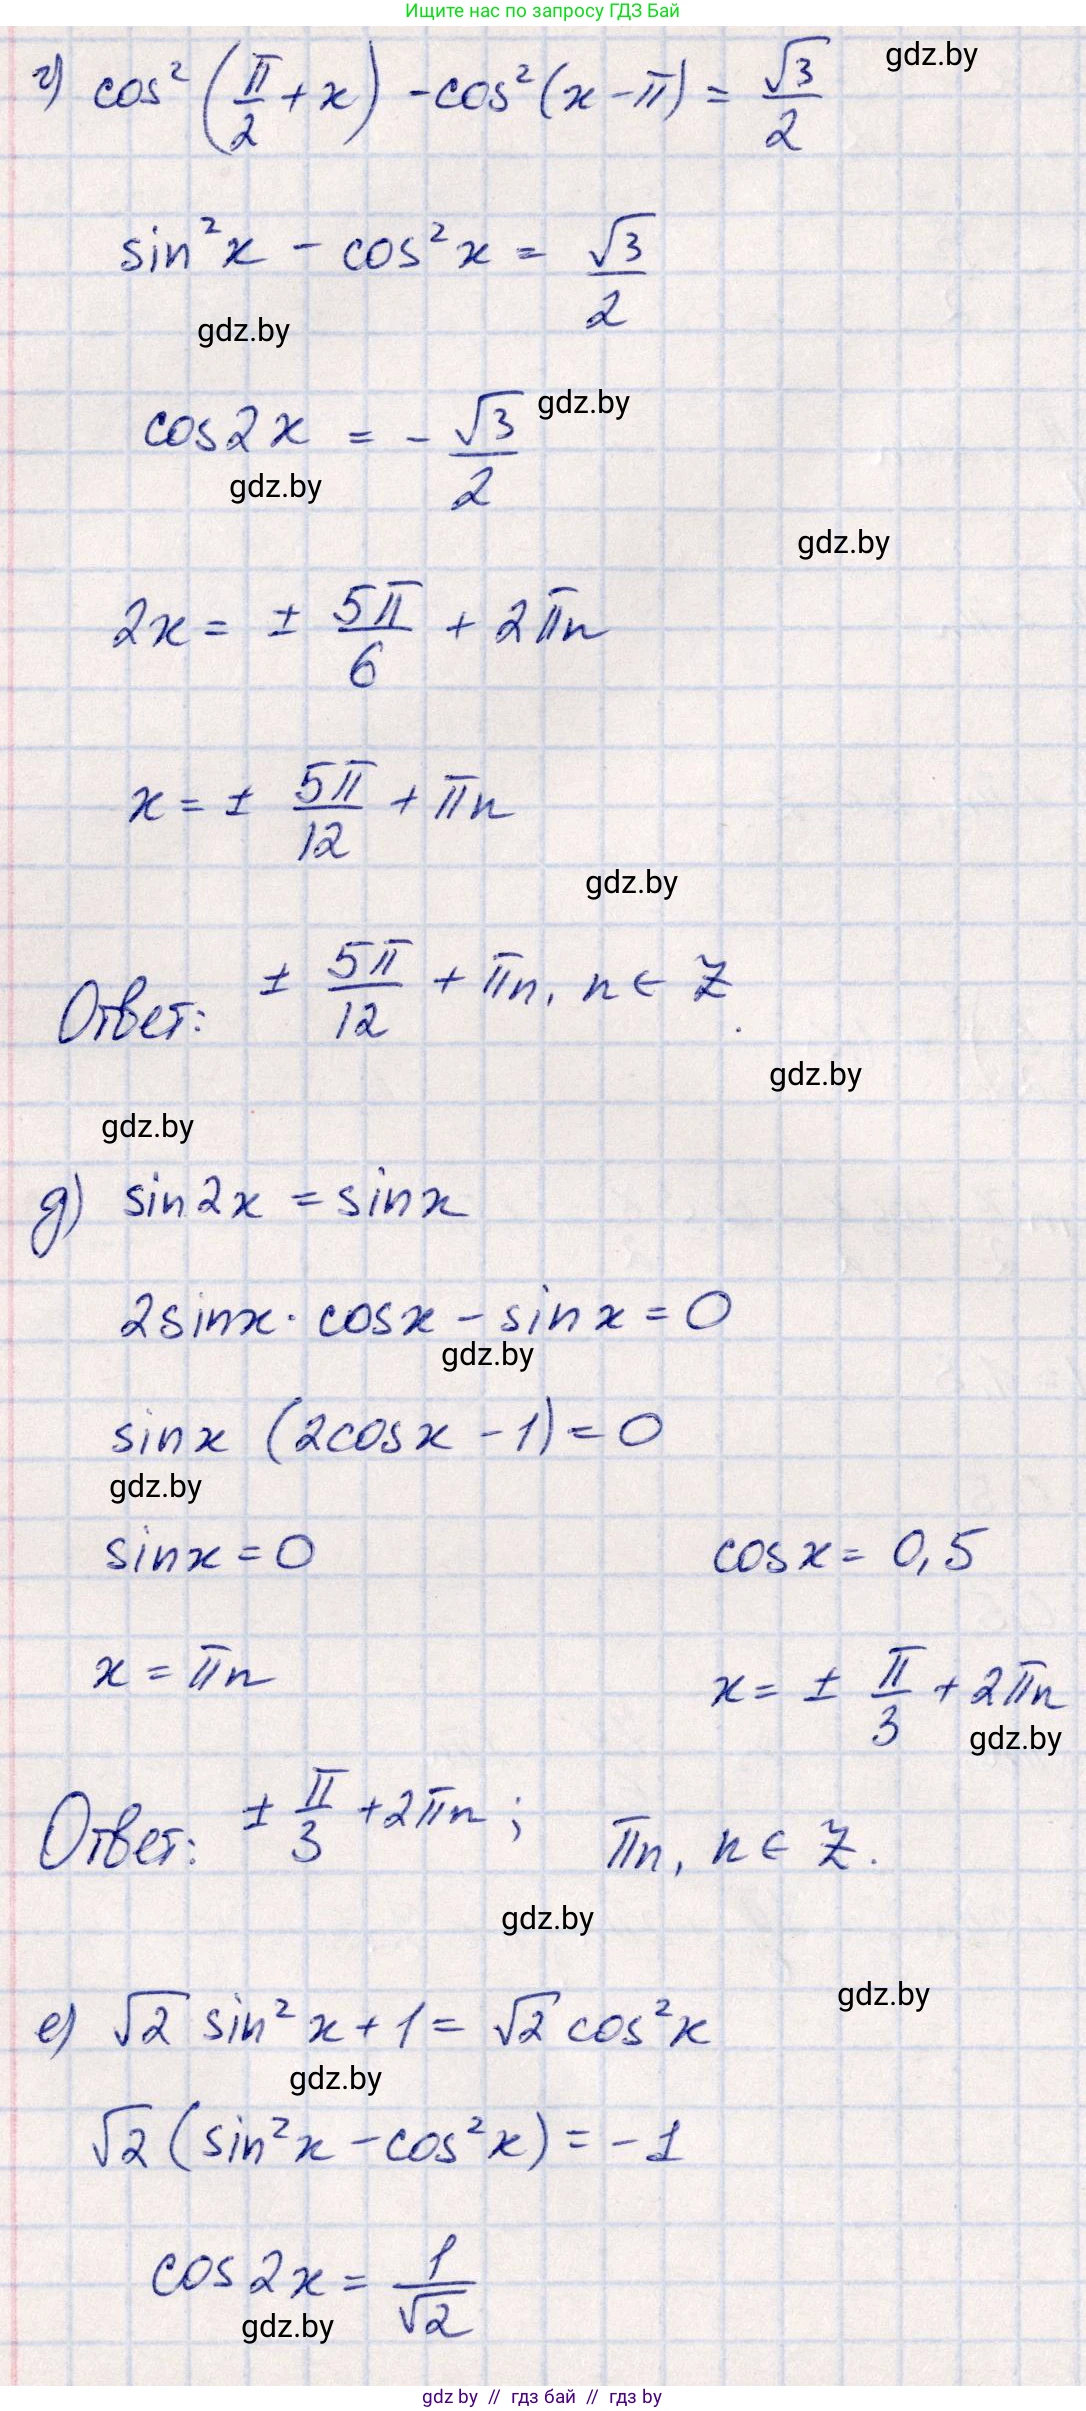 Ищите нас по запросу ГДЗ Бай
gdz.by
г) cos²(π/2 + x) - cos²(x - π) = √3/2
sin²x - cos²x = √3/2
gdz.by
gdz.by
cos2x = - √3/2
gdz.by
gdz.by
2x = ± 5π/6 + 2πn
x = ± 5π/12 + πn
gdz.by
Ответ: ± 5π/12 + πn, n ∈ Z.
gdz.by
gdz.by
д) sin2x = sinx
2sinx · cosx - sinx = 0
gdz.by
sinx (2cosx - 1) = 0
gdz.by
sinx = 0 cosx = 0,5
x = πn x = ± π/3 + 2πn
gdz.by
Ответ: ± π/3 + 2πn; πn, n ∈ Z.
gdz.by
gdz.by
е) √2 sin²x + 1 = √2 cos²x
gdz.by
√2 (sin²x - cos²x) = -1
cos2x = 1/√2
gdz.by
gdz by // гдз бай // гдз by